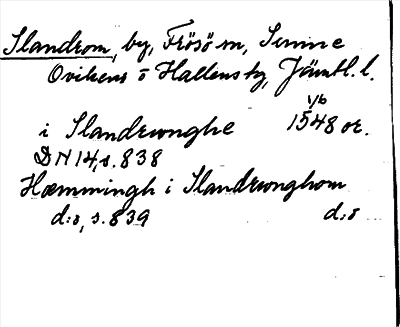 Slandrom, by, Frösö sn, Sunne
Ovikens o Hallens tg, Jämtl. l.
i Slandrwnghe 1548 1/6 or.
DN 14, s. 838
Hæmmingh i Slandrwnghom
d:o, s. 839 d:o